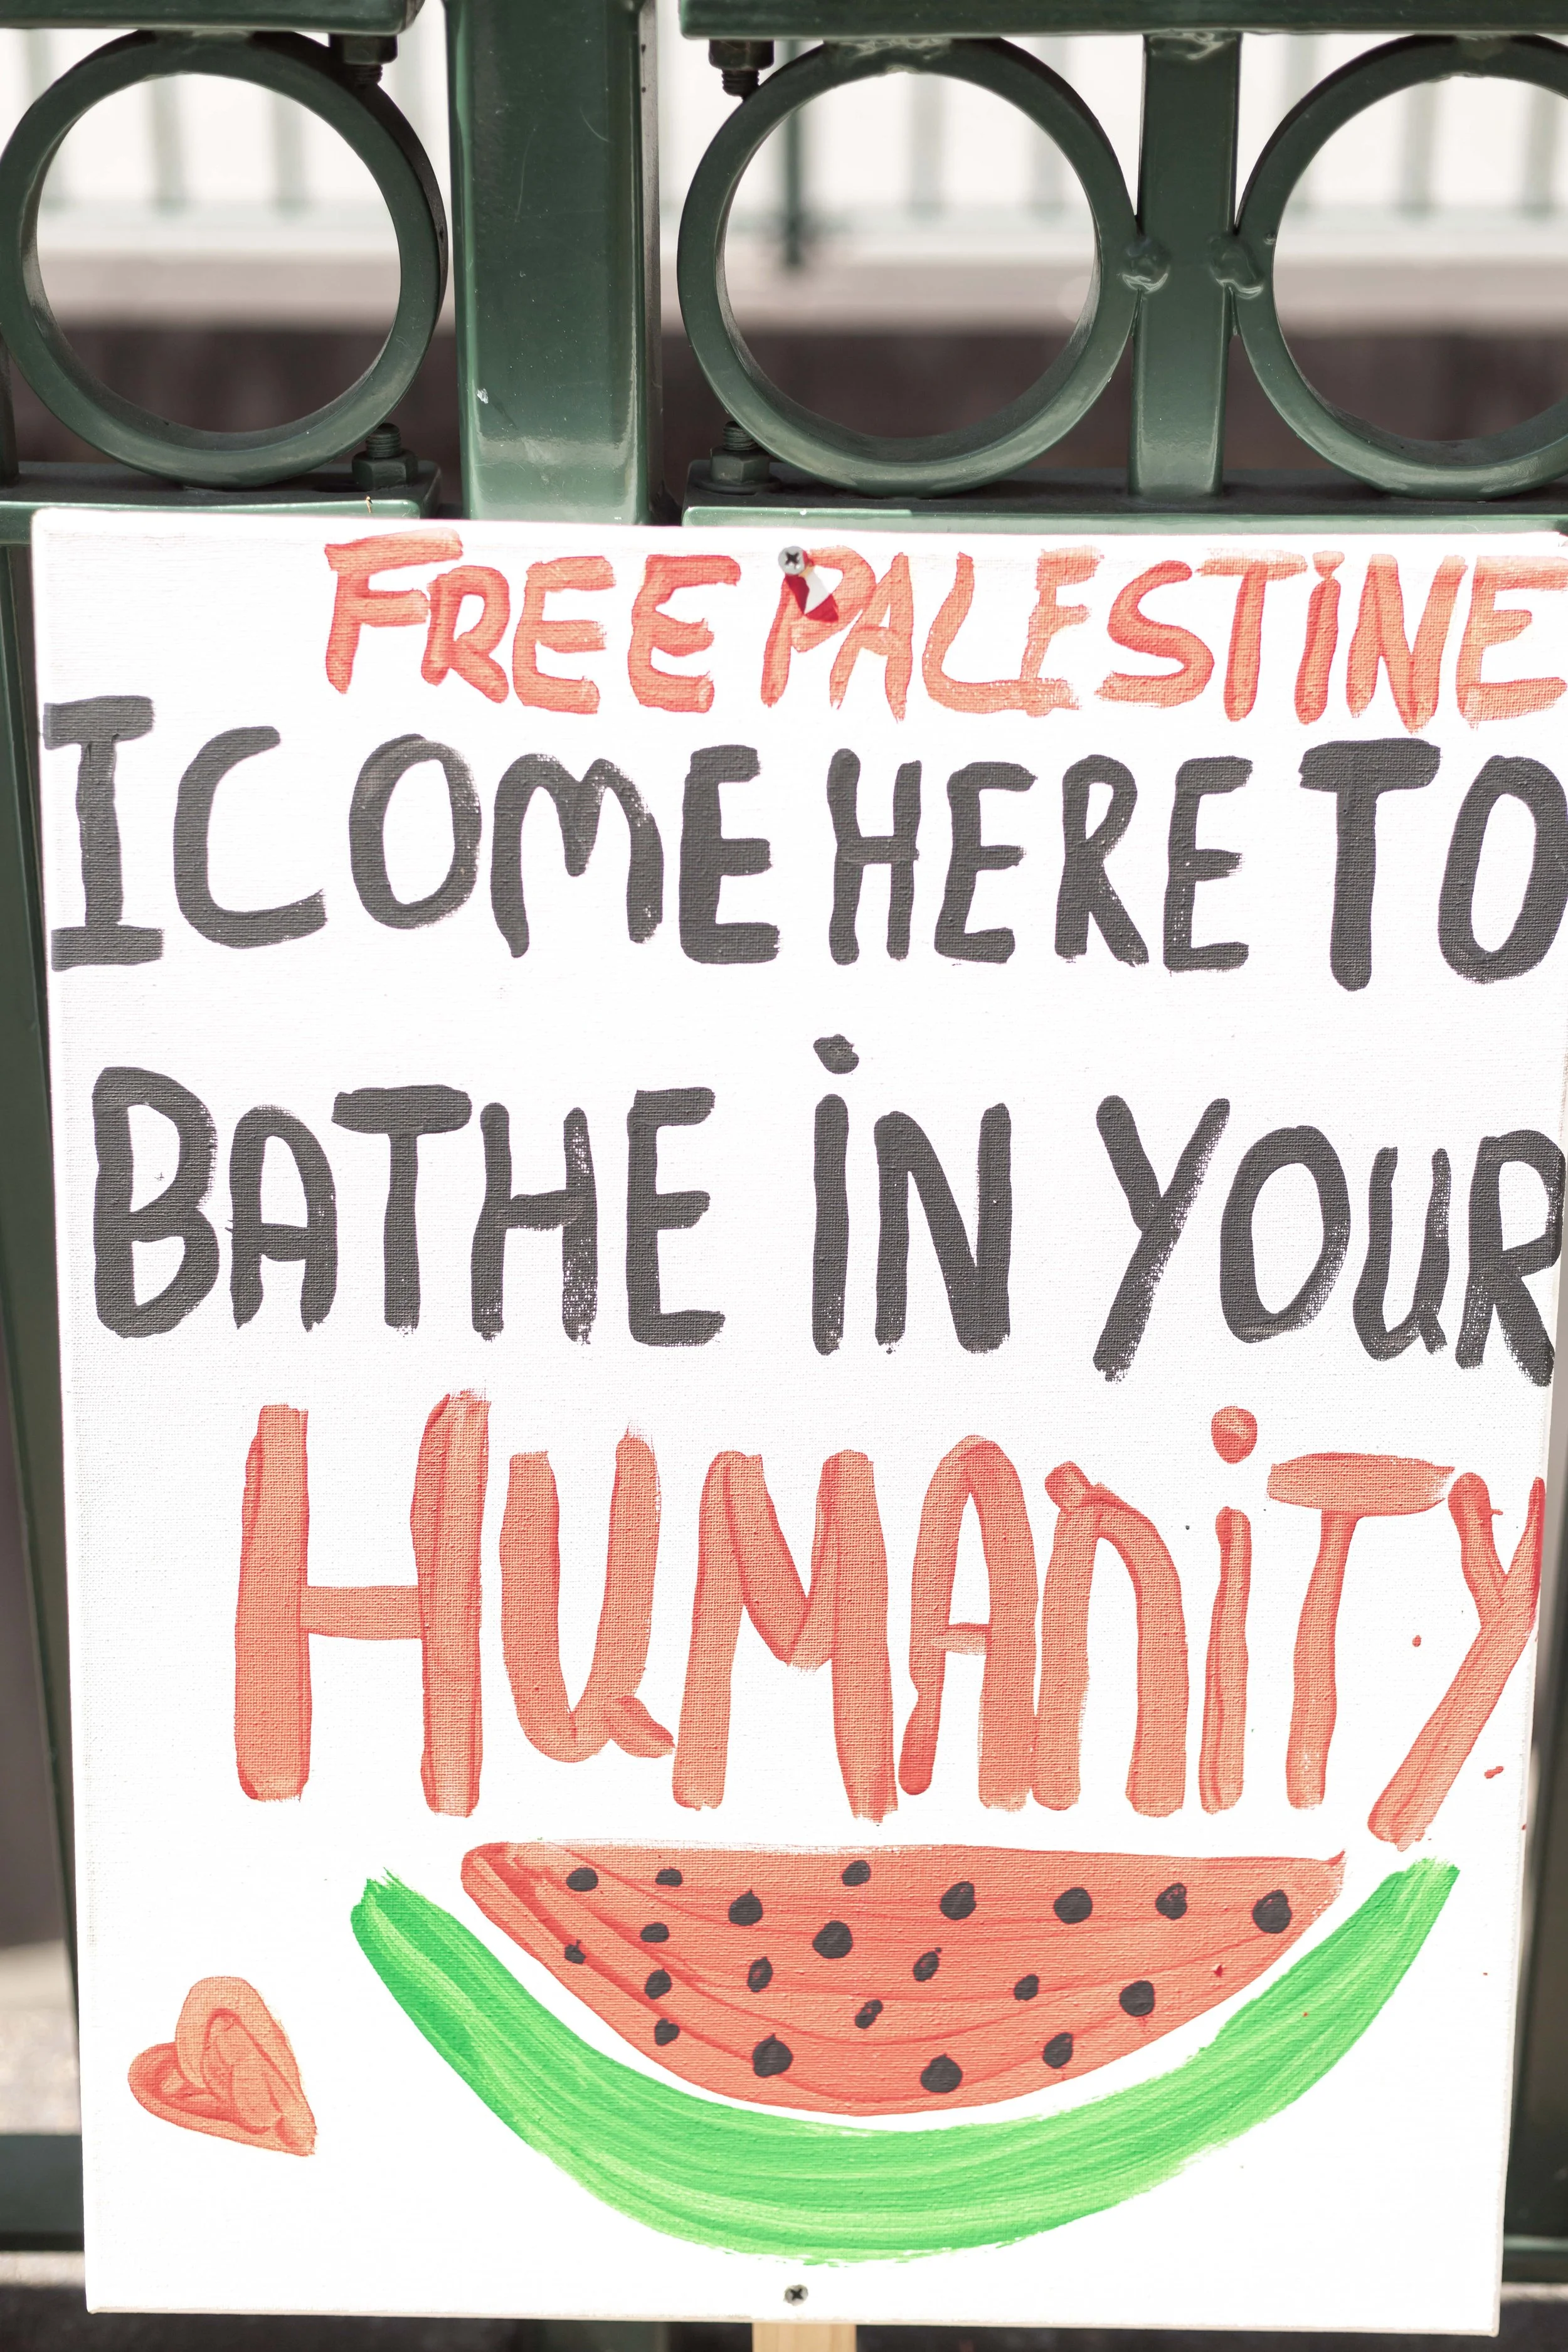 FREE PALESTINE
I COME HERE TO
BATHE iN YOUR
HUMANiTY